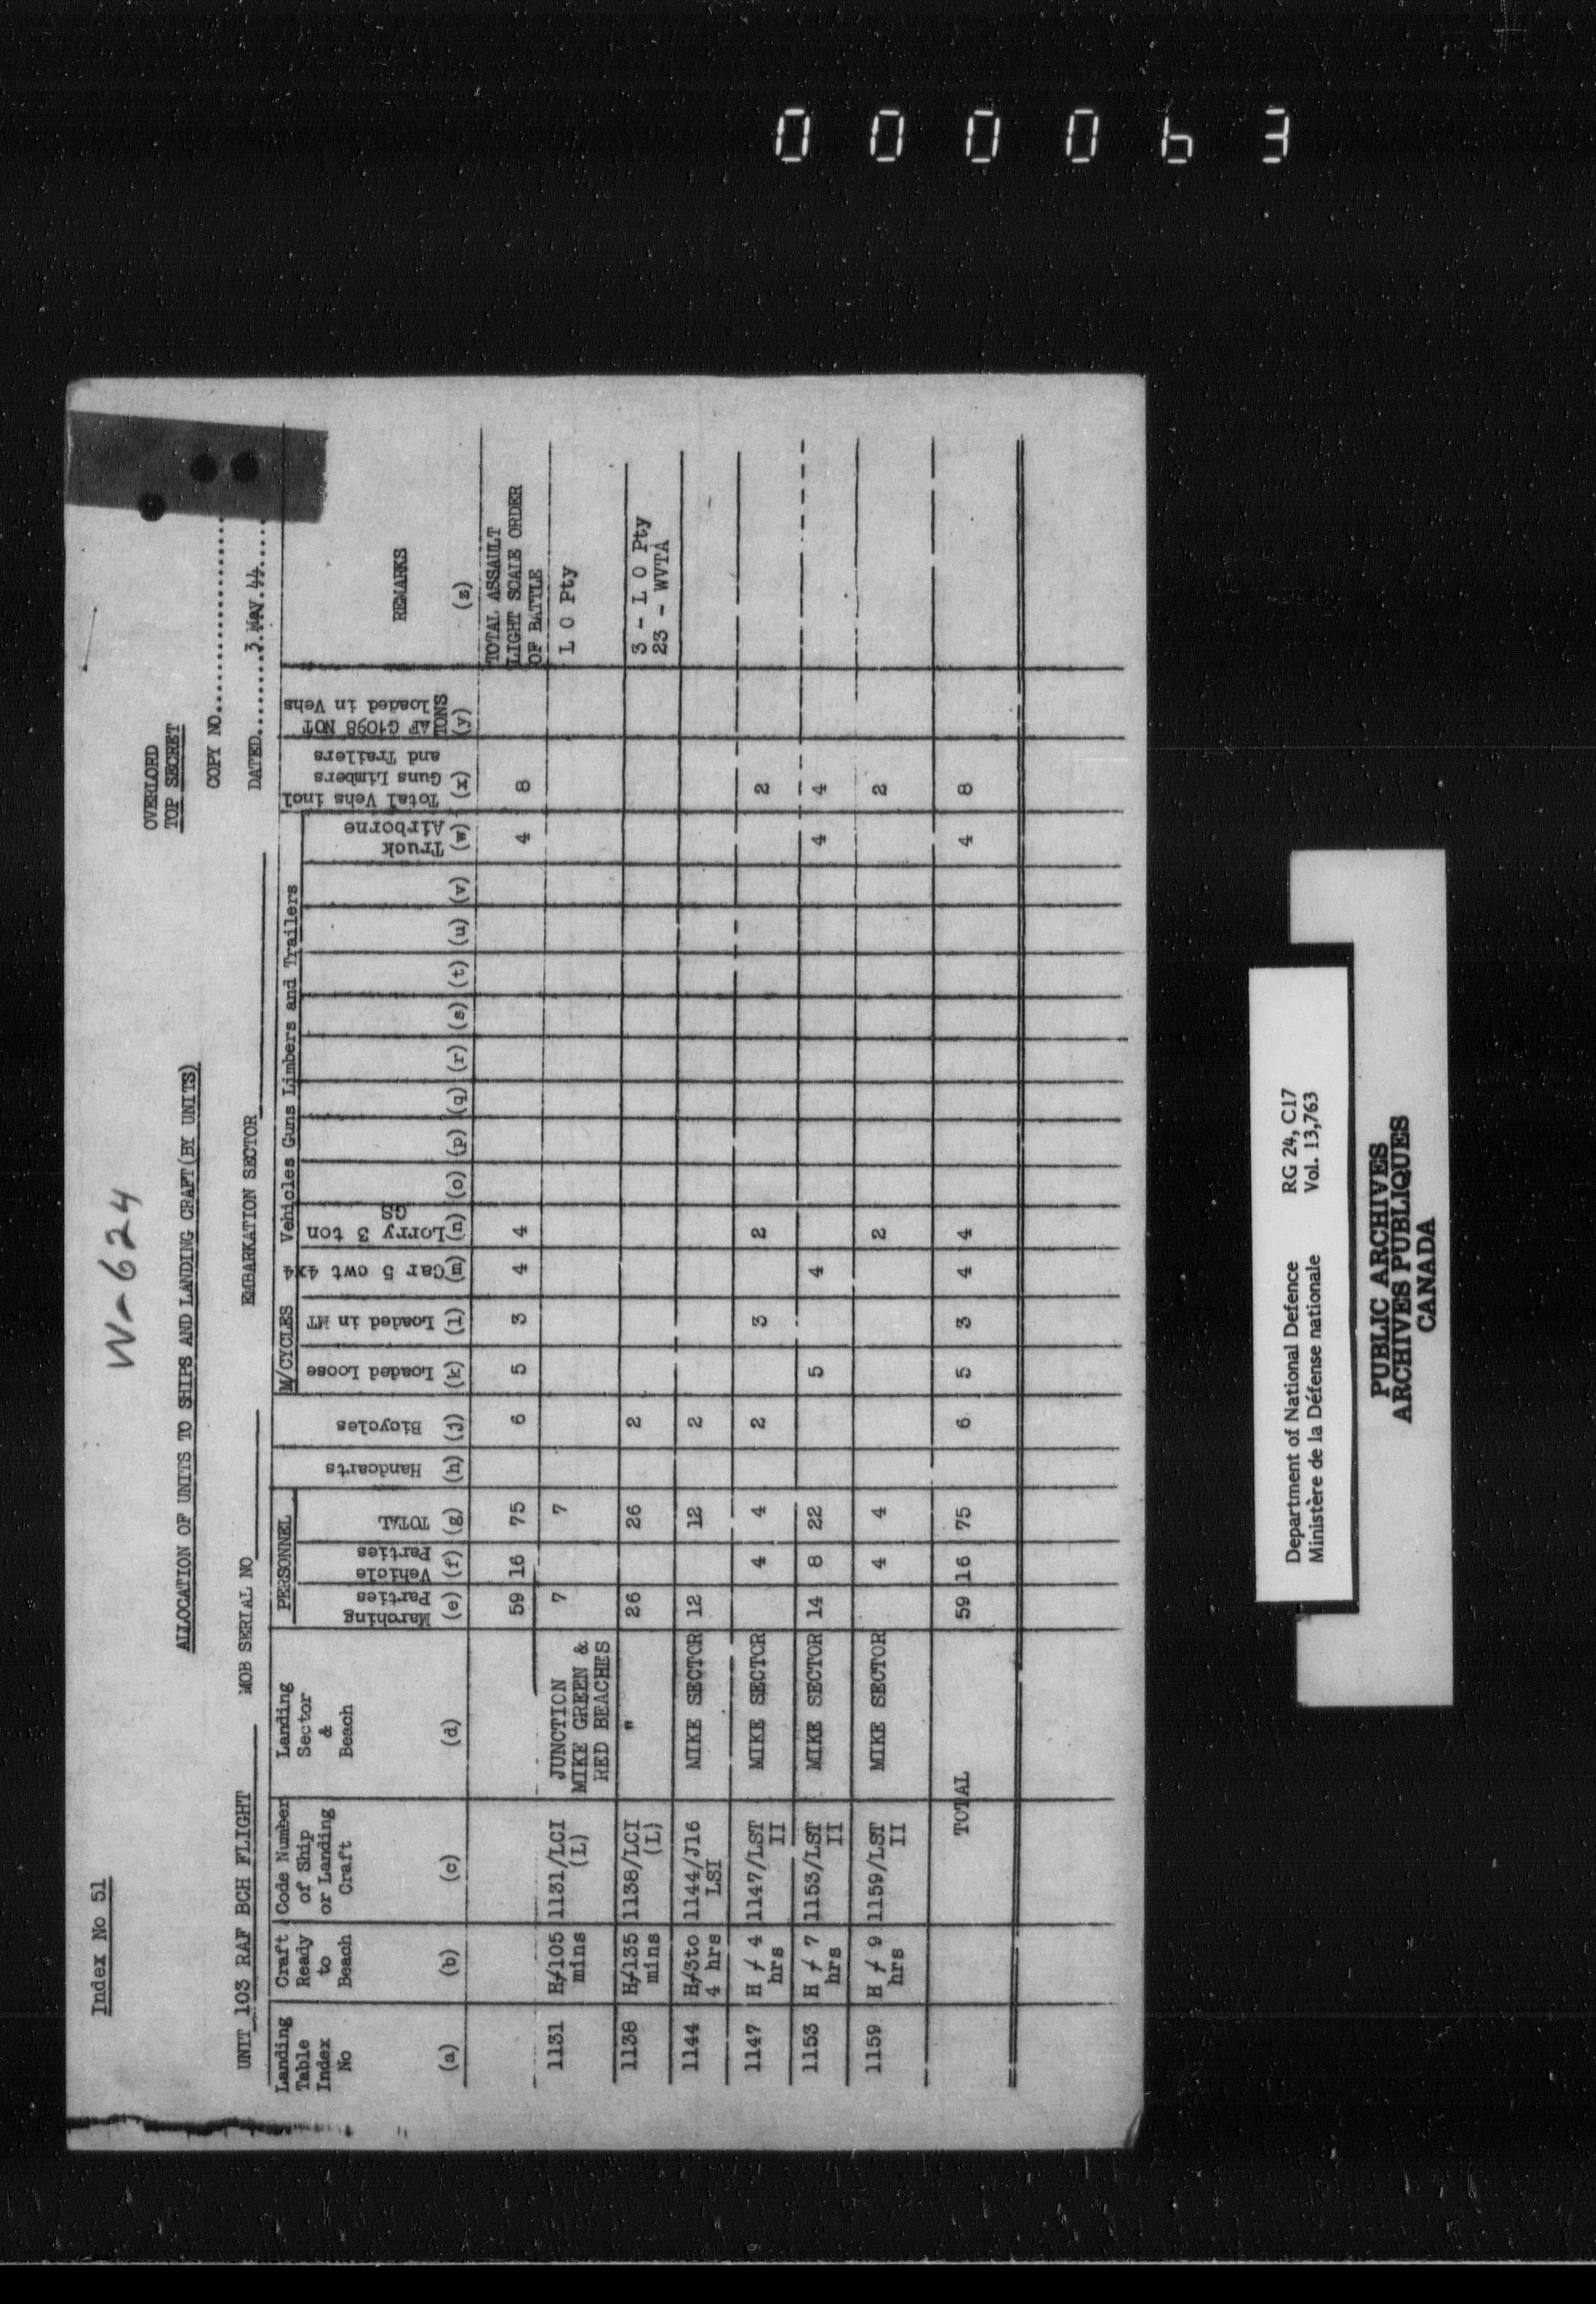 000063
W-624
Index No 51
OVERLORD
TOP SECRET
ALLOCATION OF UNITS TO SHIPS AND LANDING CRAFT (BY UNITS)
COPY NO
UNIT 103 RAF BCH FLIGHT MOB SERIAL NO EMBARKATION SECTOR DATED 3 May 44
Landing Table Index No (a)
Craft Ready to Beach (b)
Code Number of Ship or Landing Craft (c)
Landing Sector & Beach (d)
PERSONNEL
Marching Parties (e)
Vehicle Parties (f)
TOTAL (g)
Handcarts (h)
Bicycles (j)
M/CYCLES
Loaded Loose (k)
Loaded in MT (l)
Vehicles Guns Limbers and Trailers
Car 5 cwt 4x4 (m)
Lorry 3 ton GS (n)
(o) (p) (q) (r) (s) (t) (u) (v)
Truck Airborne (w)
Total Vehs incl Guns Limbers and Trailers (x)
TONS AF G1098 NOT loaded in Vehs (y)
REMARKS (z)
59 16 75 6 5 3 4 4 4 8 TOTAL ASSAULT
LIGHT SCALE ORDER
OF BATTLE
1131 H/105 mins 1131/LCI (L) JUNCTION MIKE GREEN & RED BEACHES 7 7 L O Pty
1138 H/135 mins 1138/LCI (L) " 26 26 2 3 - L O Pty
23 - WVTA
1144 H/3to 4 hrs 1144/J16 LSI MIKE SECTOR 12 12 2
1147 H / 4 hrs 1147/LST II MIKE SECTOR 4 4 2 3 2 2
1153 H / 7 hrs 1153/LST II MIKE SECTOR 14 8 22 5 4 4 4
1159 H / 9 hrs 1159/LST II MIKE SECTOR 4 4 2 2
TOTAL 59 16 75 6 5 3 4 4 4 8
Department of National Defence RG 24, C17
Ministère de la Défense nationale Vol. 13,763
PUBLIC ARCHIVES
ARCHIVES PUBLIQUES
CANADA